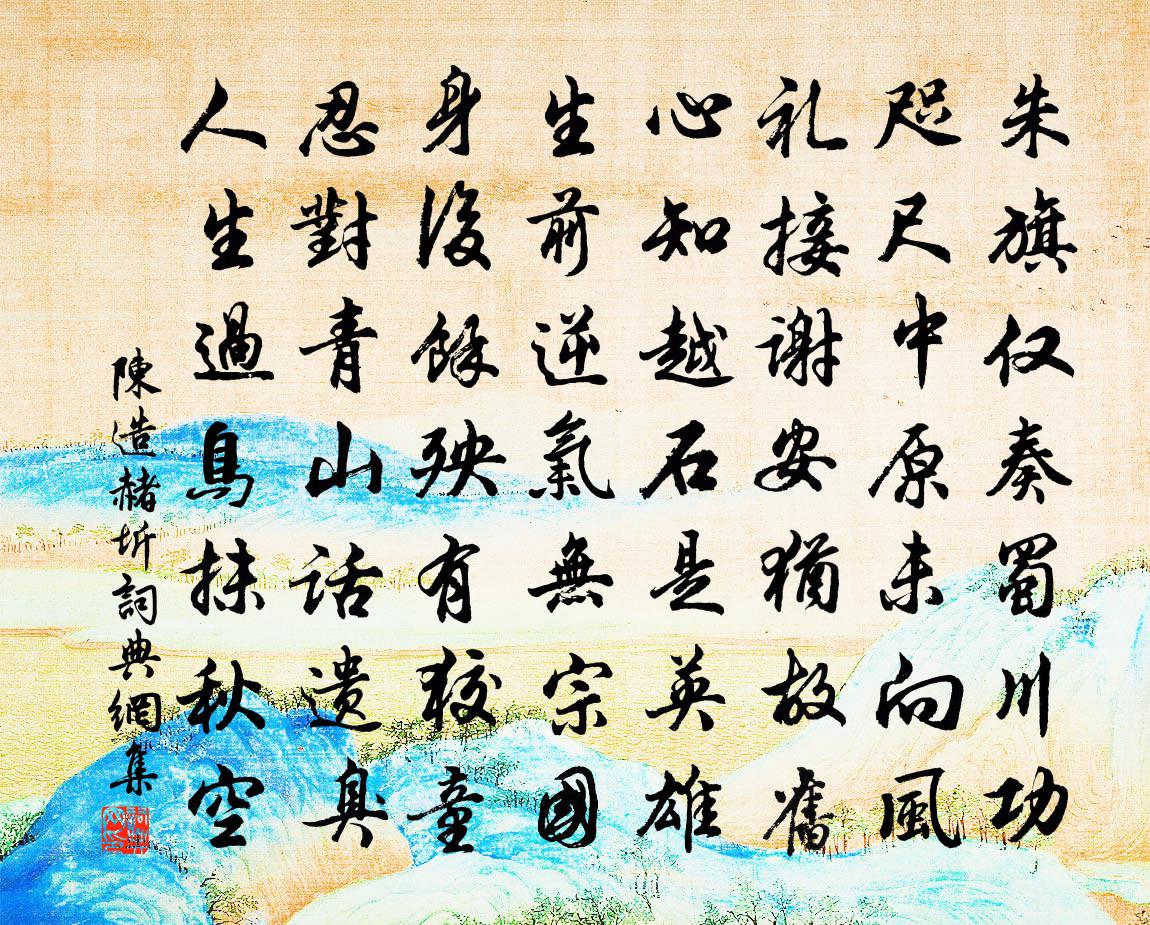 朱旗仅奏蜀川功
咫尺中原未向風
礼接谢安猶故舊
心知越石是英雄
生前逆氣無宗國
身後餘殃有狡童
忍對青山話遗臭
人生過鳥抹秋空
陳造赭圻詞典網集